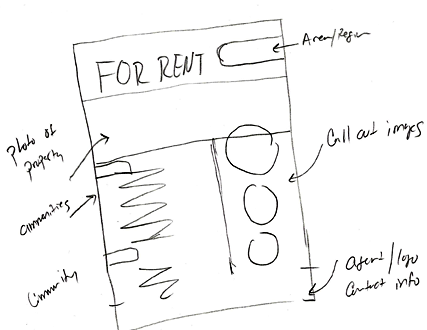 Area/Region
FOR RENT
photo of
property
Call out images
ammenities
Community
agent/logo
Contact info